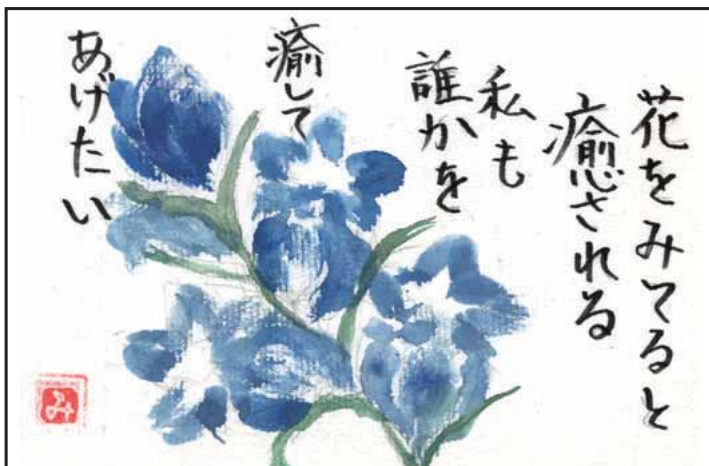 花をみてると
癒される
私も
誰かを
癒して
あげたい
み